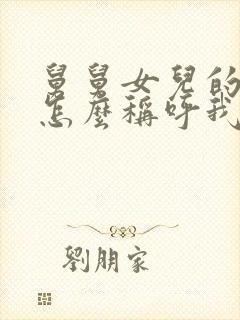 舅舅女兒的
怎麼稱呼我
劉朋家